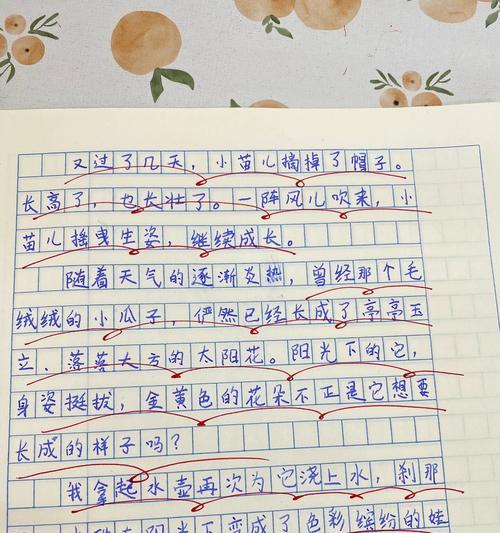 又过了几天，小苗儿摘掉了帽子。
长高了，也长壮了。一阵风儿吹来，小
苗儿摇曳生姿，继续成长。
随着天气的逐渐炎热，曾经那个毛
绒绒的小瓜子，俨然已经长成了亭亭玉
立、落落大方的太阳花。阳光下的它，
身姿挺拔，金黄色的花朵不正是它想要
长成的样子吗？
我拿起水壶再次为它浇上水，刹那
阳光下变成了色彩缤纷的娃